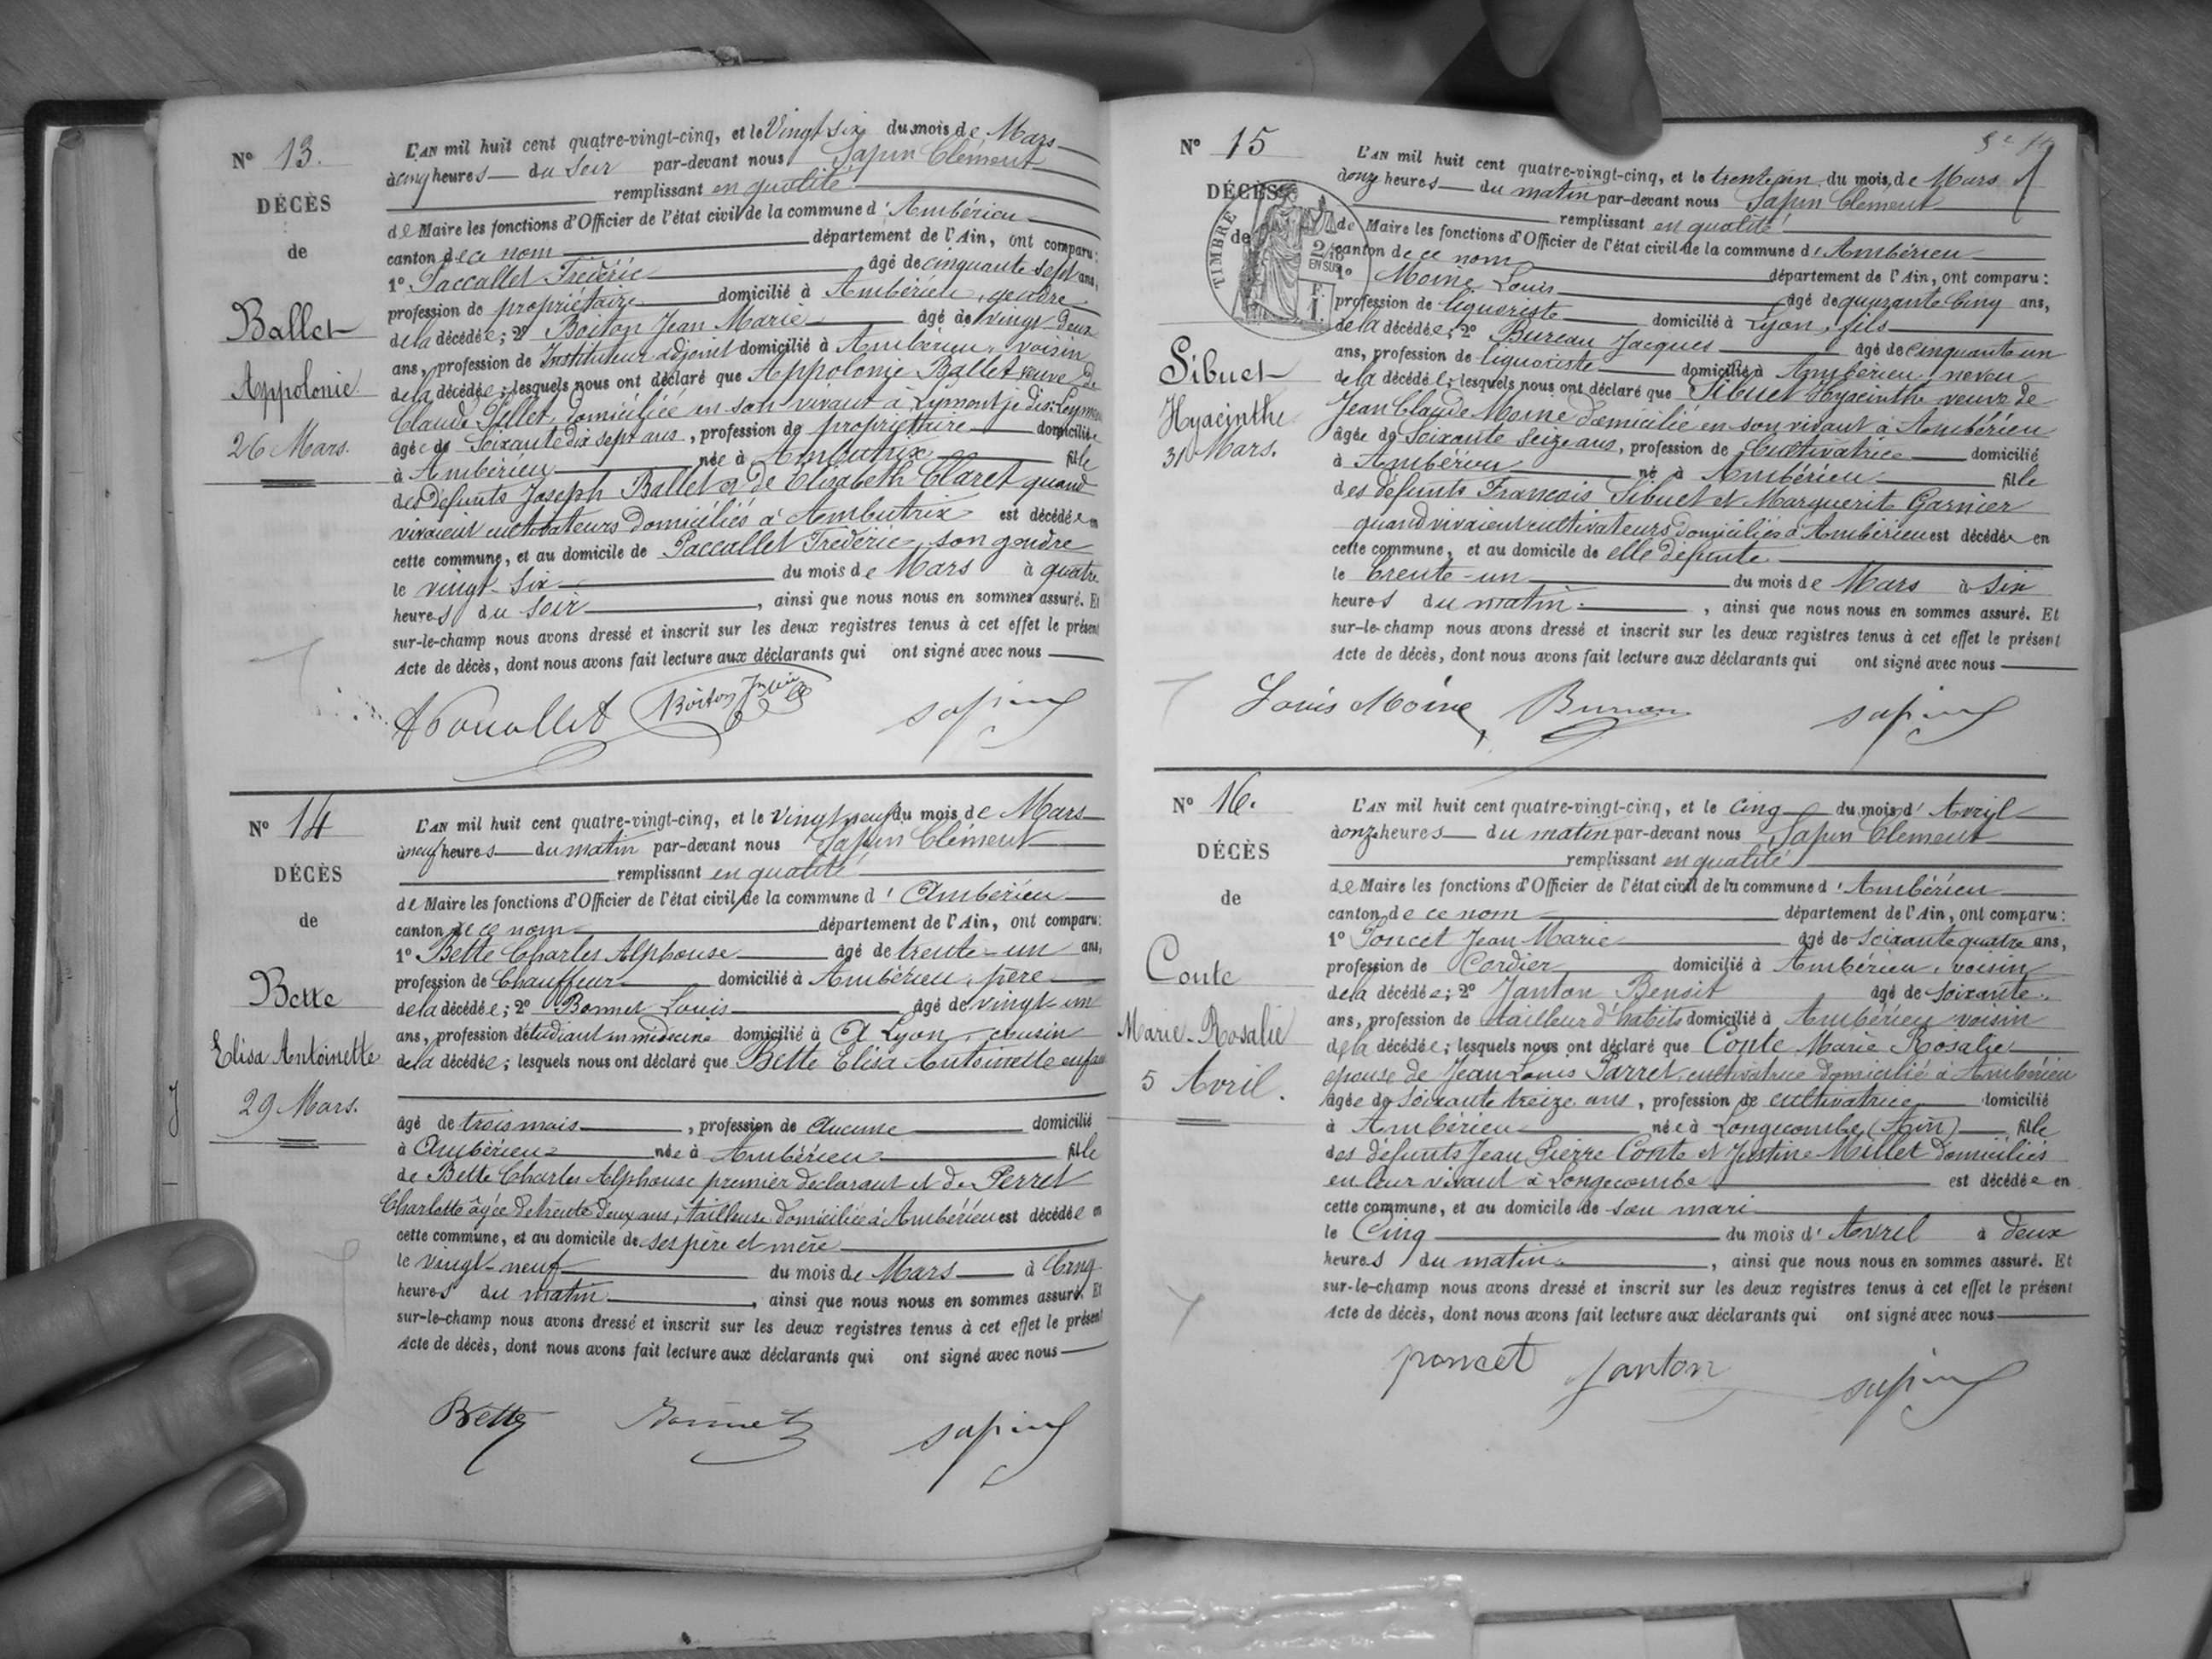 N° 13.
DÉCÈS
de
Ballet
Appolonie
26 Mars.
L'AN mil huit cent quatre-vingt-cinq, et le Vingt six du mois de Mars
à cinq heures du Soir par-devant nous Sapin Clément
remplissant en qualité
de Maire les fonctions d'Officier de l'état civil de la commune d' Ambérieu
canton de ce nom département de l'Ain, ont comparu:
1° Paccallet Frédéric âgé de cinquante sept ans,
profession de propriétaire domicilié à Ambérieu, gendre
de la décédée; 2° Boiton Jean Marie âgé de vingt-deux
ans, profession de Instituteur adjoint domicilié à Ambérieu, voisin
de la décédée; lesquels nous ont déclaré que Appolonie Ballet veuve de
Claude Pellet, domiciliée en son vivant à
âgée de Soixante dix sept ans, profession de propriétaire domicilié
à Ambérieu née à Ambutrix fille
des défunts Joseph Ballet et de Elisabeth Claret quand
vivaient cultivateurs domiciliés à Ambutrix est décédée en
cette commune, et au domicile de Paccallet Frédéric, son gendre
le vingt-six du mois de Mars à quatre
heures du soir, ainsi que nous nous en sommes assuré. Et
sur-le-champ nous avons dressé et inscrit sur les deux registres tenus à cet effet le présent
Acte de décès, dont nous avons fait lecture aux déclarants qui ont signé avec nous
Boiton
sapin
N° 14
DÉCÈS
de
Bette
Elisa Antoinette
29 Mars.
L'AN mil huit cent quatre-vingt-cinq, et le Vingt neuf du mois de Mars
à neuf heures du matin par-devant nous Sapin Clément
remplissant en qualité
de Maire les fonctions d'Officier de l'état civil de la commune d' Ambérieu
canton de ce nom département de l'Ain, ont comparu:
1° Bette Charles Alphonse âgé de trente-un ans,
profession de Chauffeur domicilié à Ambérieu, père
de la décédée; 2° Bonnet Louis âgé de vingt-un
ans, profession d'étudiant en médecine domicilié à A Lyon, cousin
de la décédée; lesquels nous ont déclaré que Bette Elisa Antoinette enfant
âgé de trois mois, profession de Aucune domicilié
à Ambérieu née à Ambérieu fille
de Bette Charles Alphonse premier déclarant et de Perret
Charlotte âgée de trente deux ans, tailleuse domiciliée à Ambérieu est décédée en
cette commune, et au domicile de ses père et mère
le vingt-neuf du mois de Mars à Cinq
heures du matin, ainsi que nous nous en sommes assuré. Et
sur-le-champ nous avons dressé et inscrit sur les deux registres tenus à cet effet le présent
Acte de décès, dont nous avons fait lecture aux déclarants qui ont signé avec nous
Bette Bonnet sapin
N° 15
DÉCÈS
de
TIMBRE
Sibuet
Hyacinthe
31 Mars.
L'AN mil huit cent quatre-vingt-cinq, et le trente un du mois de Mars
à onze heures du matin par-devant nous Sapin Clément
remplissant en qualité
de Maire les fonctions d'Officier de l'état civil de la commune d' Ambérieu
canton de ce nom département de l'Ain, ont comparu:
1° Moine Louis âgé de quarante cinq ans,
profession de liquoriste domicilié à Lyon, fils
de la décédée; 2° Bureau Jacques âgé de cinquante un
ans, profession de liquoriste domicilié à Ambérieu, neveu
de la décédée; lesquels nous ont déclaré que Sibuet Hyacinthe veuve de
Jean Claude Moine domicilié en son vivant à Ambérieu
âgée de Soixante Seize ans, profession de Cultivatrice domicilié
à Ambérieu né à Ambérieu fille
des défunts François Sibuet et Marguerite Garnier
quand vivaient cultivateurs domiciliés à Ambérieu est décédée en
cette commune, et au domicile de elle défunte
le trente-un du mois de Mars à six
heures du matin, ainsi que nous nous en sommes assuré. Et
sur-le-champ nous avons dressé et inscrit sur les deux registres tenus à cet effet le présent
Acte de décès, dont nous avons fait lecture aux déclarants qui ont signé avec nous
Louis Moine Bureau sapin
N° 16.
DÉCÈS
de
Conte
Marie-Rosalie
5 Avril.
L'AN mil huit cent quatre-vingt-cinq, et le cinq du mois d' Avril
à onze heures du matin par-devant nous Sapin Clément
remplissant en qualité
de Maire les fonctions d'Officier de l'état civil de la commune d' Ambérieu
canton de ce nom département de l'Ain, ont comparu:
1° Poncet Jean Marie âgé de soixante quatre ans,
profession de Cordier domicilié à Ambérieu, voisin
de la décédée; 2° Janton Benoit âgé de soixante
ans, profession de tailleur d'habits domicilié à Ambérieu voisin
de la décédée; lesquels nous ont déclaré que Conte Marie Rosalie
épouse de Jean Louis Parret, cultivatrice domicilié à Ambérieu
âgée de soixante treize ans, profession de cultivatrice domicilié
à Ambérieu née à Longecombe (Ain) fille
des défunts Jean Pierre Conte et Justine Millet domiciliés
en leur vivant à Longecombe est décédée en
cette commune, et au domicile de son mari
le Cinq du mois d' Avril à deux
heures du matin, ainsi que nous nous en sommes assuré. Et
sur-le-champ nous avons dressé et inscrit sur les deux registres tenus à cet effet le présent
Acte de décès, dont nous avons fait lecture aux déclarants qui ont signé avec nous
poncet Janton sapin